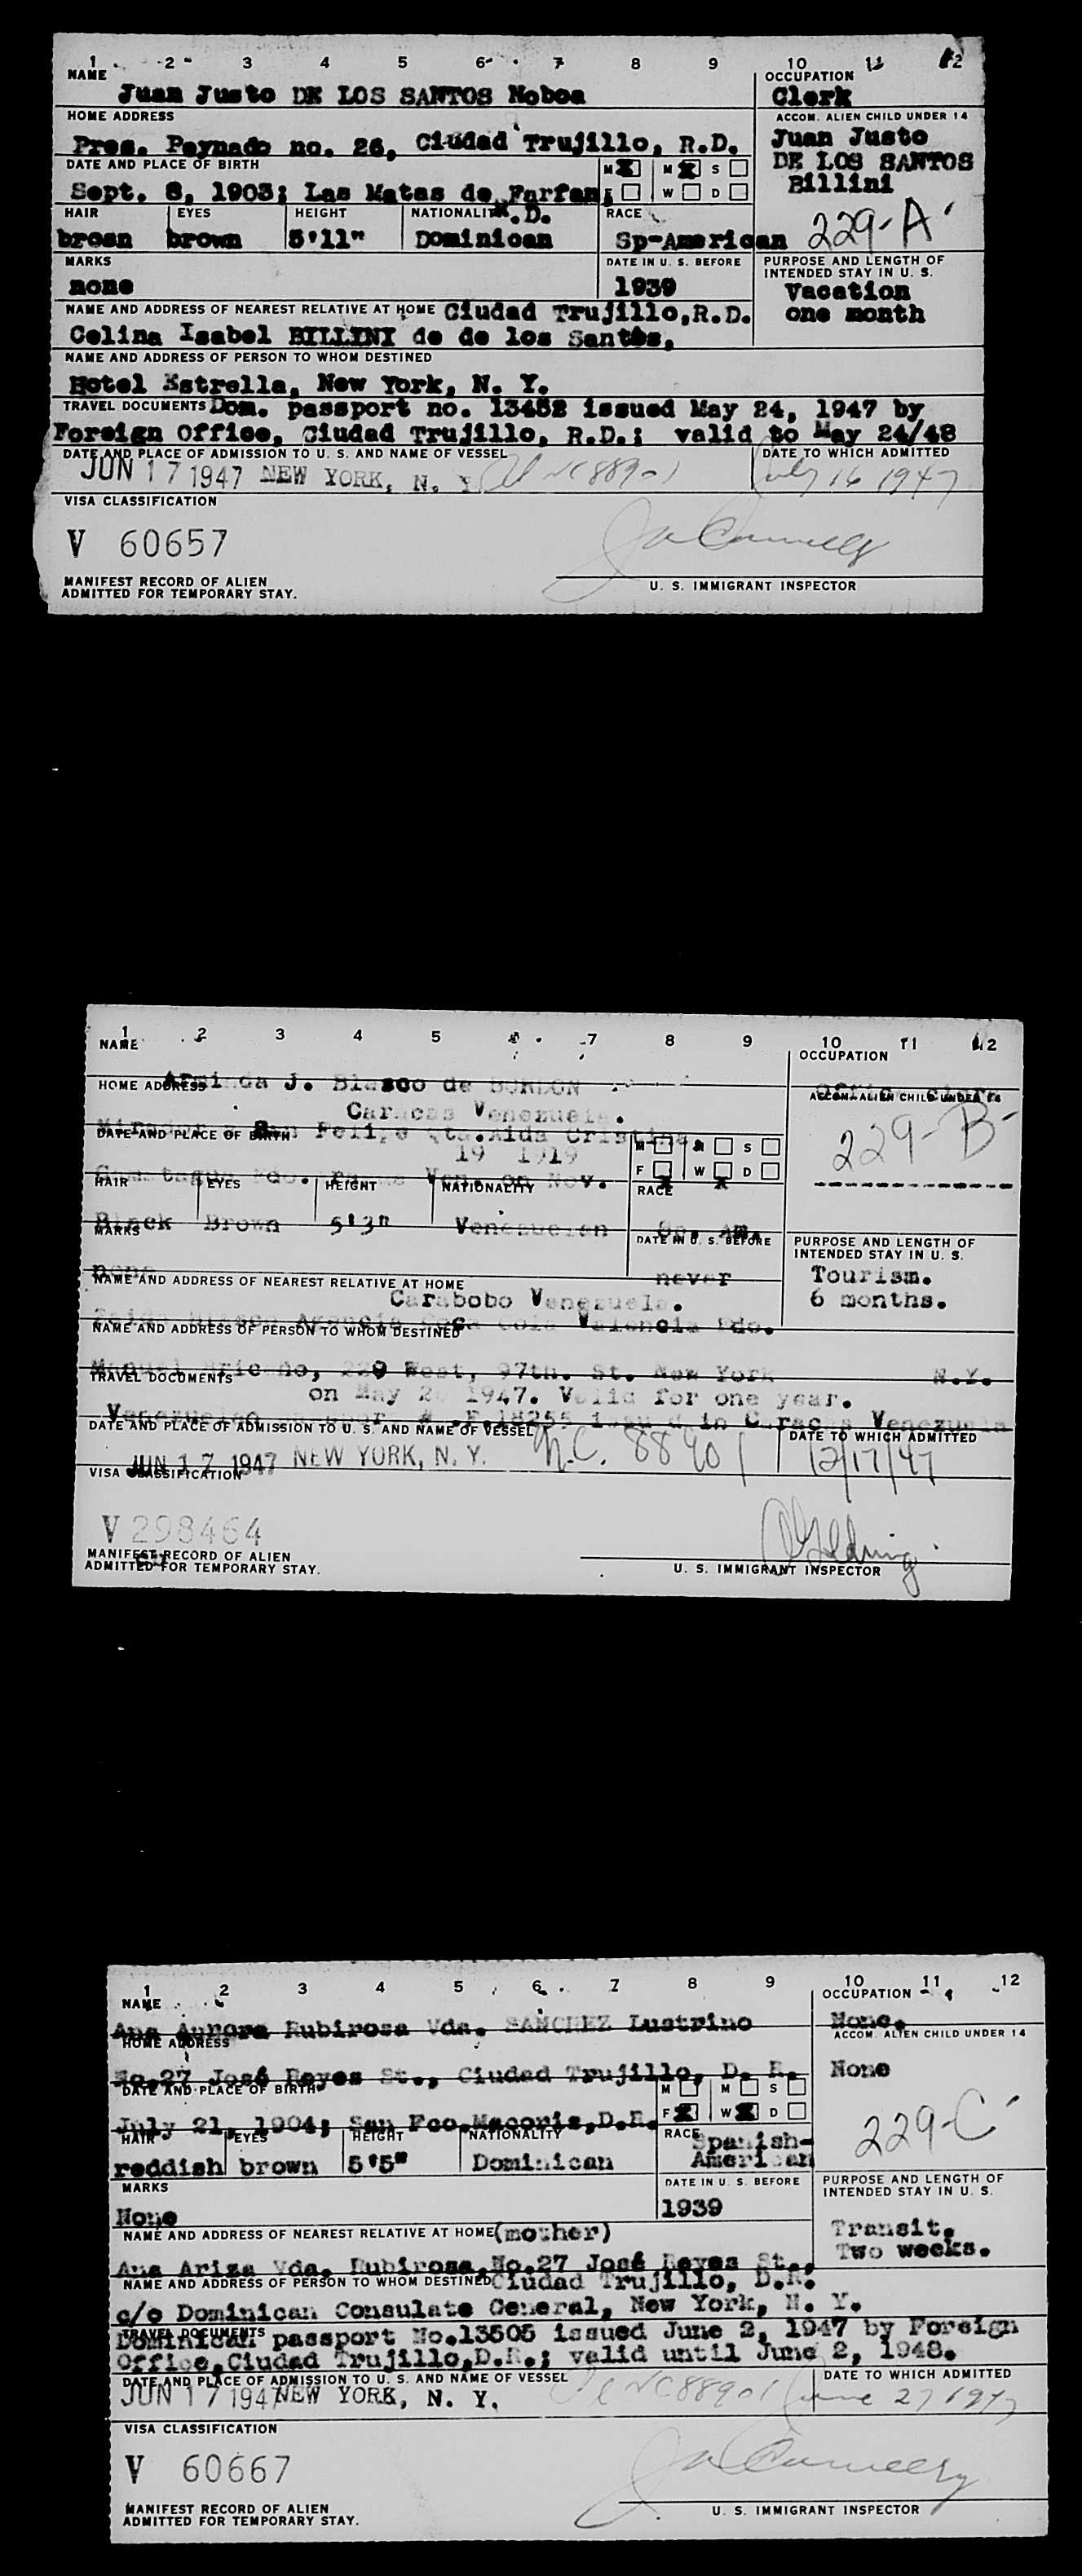 1 2 3 4 5 6 7 8 9 10 11 12
NAME
Juan Justo DE LOS SANTOS Noboa
OCCUPATION
Clerk
HOME ADDRESS
Pres. Peynado no. 26, Ciudad Trujillo, R.D.
ACCOM. ALIEN CHILD UNDER 14
Juan Justo
DE LOS SANTOS
Billini
DATE AND PLACE OF BIRTH
M M S
Sept. 8, 1903; Las Matas de Farfan,
F W D
R.D.
229-A
HAIR EYES HEIGHT NATIONALITY RACE
brosn brown 5'11" Dominican Sp-American
MARKS
none
DATE IN U. S. BEFORE
1939
PURPOSE AND LENGTH OF
INTENDED STAY IN U. S.
Vacation
one month
NAME AND ADDRESS OF NEAREST RELATIVE AT HOME Ciudad Trujillo, R.D.
Celina Isabel BILLINI de de los Santos,
NAME AND ADDRESS OF PERSON TO WHOM DESTINED
Hotel Estrella, New York, N. Y.
TRAVEL DOCUMENTS Dom. passport no. 13452 issued May 24, 1947 by
Foreign Office, Ciudad Trujillo, R.D.; valid to May 24/48
DATE AND PLACE OF ADMISSION TO U. S. AND NAME OF VESSEL
JUN 17 1947 NEW YORK, N. Y. NC 88901
DATE TO WHICH ADMITTED
July 16 1947
VISA CLASSIFICATION
V 60657
MANIFEST RECORD OF ALIEN
ADMITTED FOR TEMPORARY STAY.
U. S. IMMIGRANT INSPECTOR
1 2 3 4 5 6 7 8 9 10 11 12
NAME
OCCUPATION
Arminda J. Blasco de
HOME ADDRESS
ACCOM. ALIEN CHILD UNDER 14
Caracas Venezuela.
Qta. Aida Cristina
DATE AND PLACE OF BIRTH
229-B
19 1919
M M S
F W D
Nov.
HAIR EYES HEIGHT NATIONALITY RACE
Black Brown 5'3" Venezuelan Sp. Am.
MARKS
none
DATE IN U. S. BEFORE
never
PURPOSE AND LENGTH OF
INTENDED STAY IN U. S.
Tourism.
6 months.
NAME AND ADDRESS OF NEAREST RELATIVE AT HOME
Carabobo Venezuela.
Agencia Coca Cola Valencia Edo.
NAME AND ADDRESS OF PERSON TO WHOM DESTINED
Manuel 229 West, 97th. St. New York N.Y.
TRAVEL DOCUMENTS
on May 1947. Valid for one year.
Venezuelan issued in Caracas Venezuela
DATE AND PLACE OF ADMISSION TO U. S. AND NAME OF VESSEL
JUN 17 1947 NEW YORK, N. Y. N.C. 88901
DATE TO WHICH ADMITTED
12/17/47
VISA CLASSIFICATION
V 298464
MANIFEST RECORD OF ALIEN
ADMITTED FOR TEMPORARY STAY.
U. S. IMMIGRANT INSPECTOR
1 2 3 4 5 6 7 8 9 10 11 12
NAME
Ana Aurora Rubirosa Vda. SANCHEZ Lustrino
OCCUPATION
None.
HOME ADDRESS
No.27 José Reyes St., Ciudad Trujillo, D. R.
ACCOM. ALIEN CHILD UNDER 14
None
DATE AND PLACE OF BIRTH
M M S
July 21, 1904; San Fco.Macoris,D.R.
F W D
229-C
HAIR EYES HEIGHT NATIONALITY RACE
reddish brown 5'5" Dominican Spanish-
American
MARKS
None
DATE IN U. S. BEFORE
1939
PURPOSE AND LENGTH OF
INTENDED STAY IN U. S.
Transit.
Two weeks.
NAME AND ADDRESS OF NEAREST RELATIVE AT HOME (mother)
Ana Ariza Vda. Rubirosa,No.27 José Reyes St.,
NAME AND ADDRESS OF PERSON TO WHOM DESTINED Ciudad Trujillo, D.R.
c/o Dominican Consulate General, New York, N. Y.
TRAVEL DOCUMENTS
Dominican passport No.13505 issued June 2, 1947 by Foreign
Office,Ciudad Trujillo,D.R.; valid until June 2, 1948.
DATE AND PLACE OF ADMISSION TO U. S. AND NAME OF VESSEL
JUN 17 1947 NEW YORK, N. Y. NC 88901
DATE TO WHICH ADMITTED
June 27 1947
VISA CLASSIFICATION
V 60667
MANIFEST RECORD OF ALIEN
ADMITTED FOR TEMPORARY STAY.
U. S. IMMIGRANT INSPECTOR